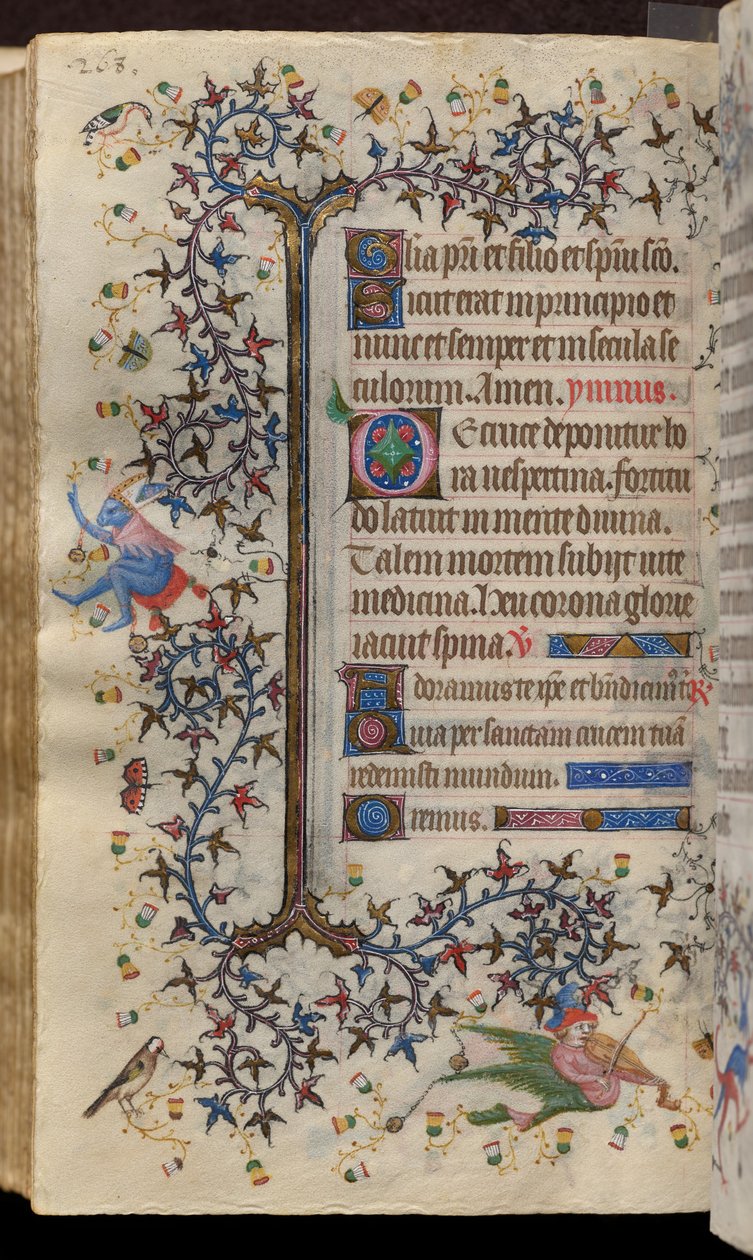 263.
Glia pri et filio et spiu sco.
Sicut erat in principio et
nunc et semper et in secula se
culorum. Amen. ymnus.
De cruce deponitur ho
ra uespertina. fortitu
do latuit in mente diuina.
Talem mortem subijt uite
medicina. heu corona glorie
iacuit spina. V
Adoramus te xpe et bndicim9 t R
Quia per sanctam crucem tua
redemisti mundum.
Oremus.